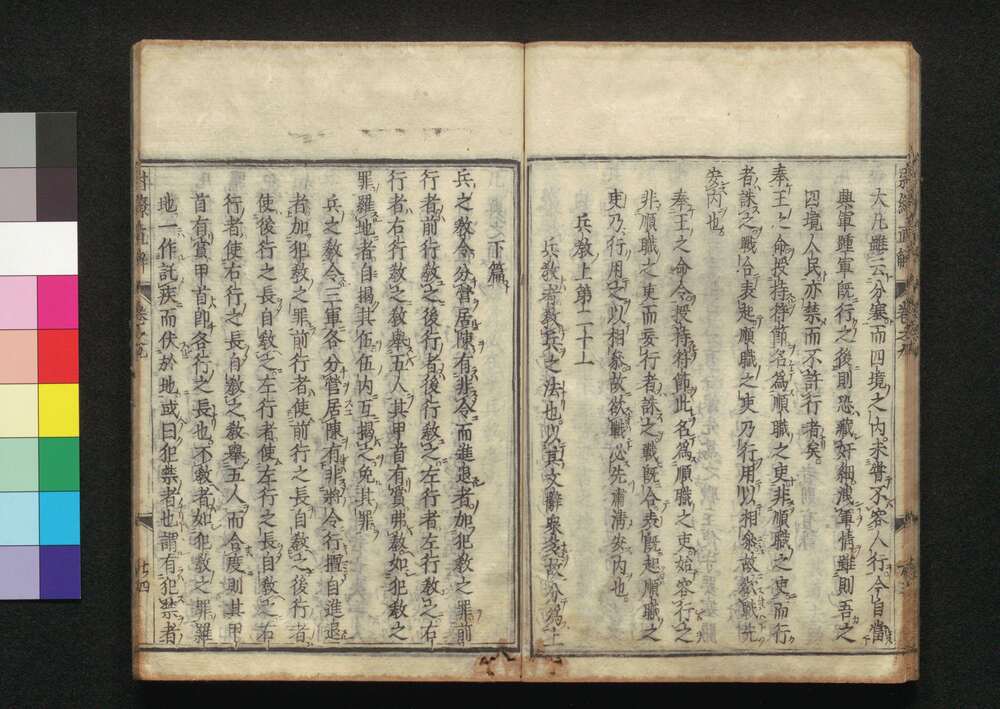 大凡雖云分塞而四境之内未嘗不容人行今自當
典軍踵軍既行之後則恐藏奸細洩軍情雖則吾之
四境人民亦禁而不許行者矣
奉王之命授持符節名爲順職之吏非順職之吏而行
者誅之戰合表起順職之吏乃行用以相參故欲戰先
安内也
奉王之命令授持符節此名爲順職之吏始容行之
非順職之吏而妄行者誅之戰既合表既起順職之
吏乃行用之以相參故欲戰必先肅清安内也
兵教上第二十一
兵教者教兵之法也以其文辭衆多故分爲上
下篇
兵之教令分營居陳有非令而進退者加犯教之罪前
行者前行教之後行者後行教之左行者左行教之右
行者右行教之教舉五人其甲首有賞弗教如犯教之
罪羅地者自揭其伍伍内互揭之免其罪
兵之教令三軍各分營居陳有非將令行擅自進退
者加犯教之罪前行者使前行之長自教之後行者
使後行之長自教之左行者使左行之長自教之右
行者使右行之長自教之教舉五人而合度則其甲
首有賞甲首即各行之長也不教者如犯教之罪羅
地一作託疾而伏於地或曰犯禁者也謂有犯禁者
卷之九
廿四